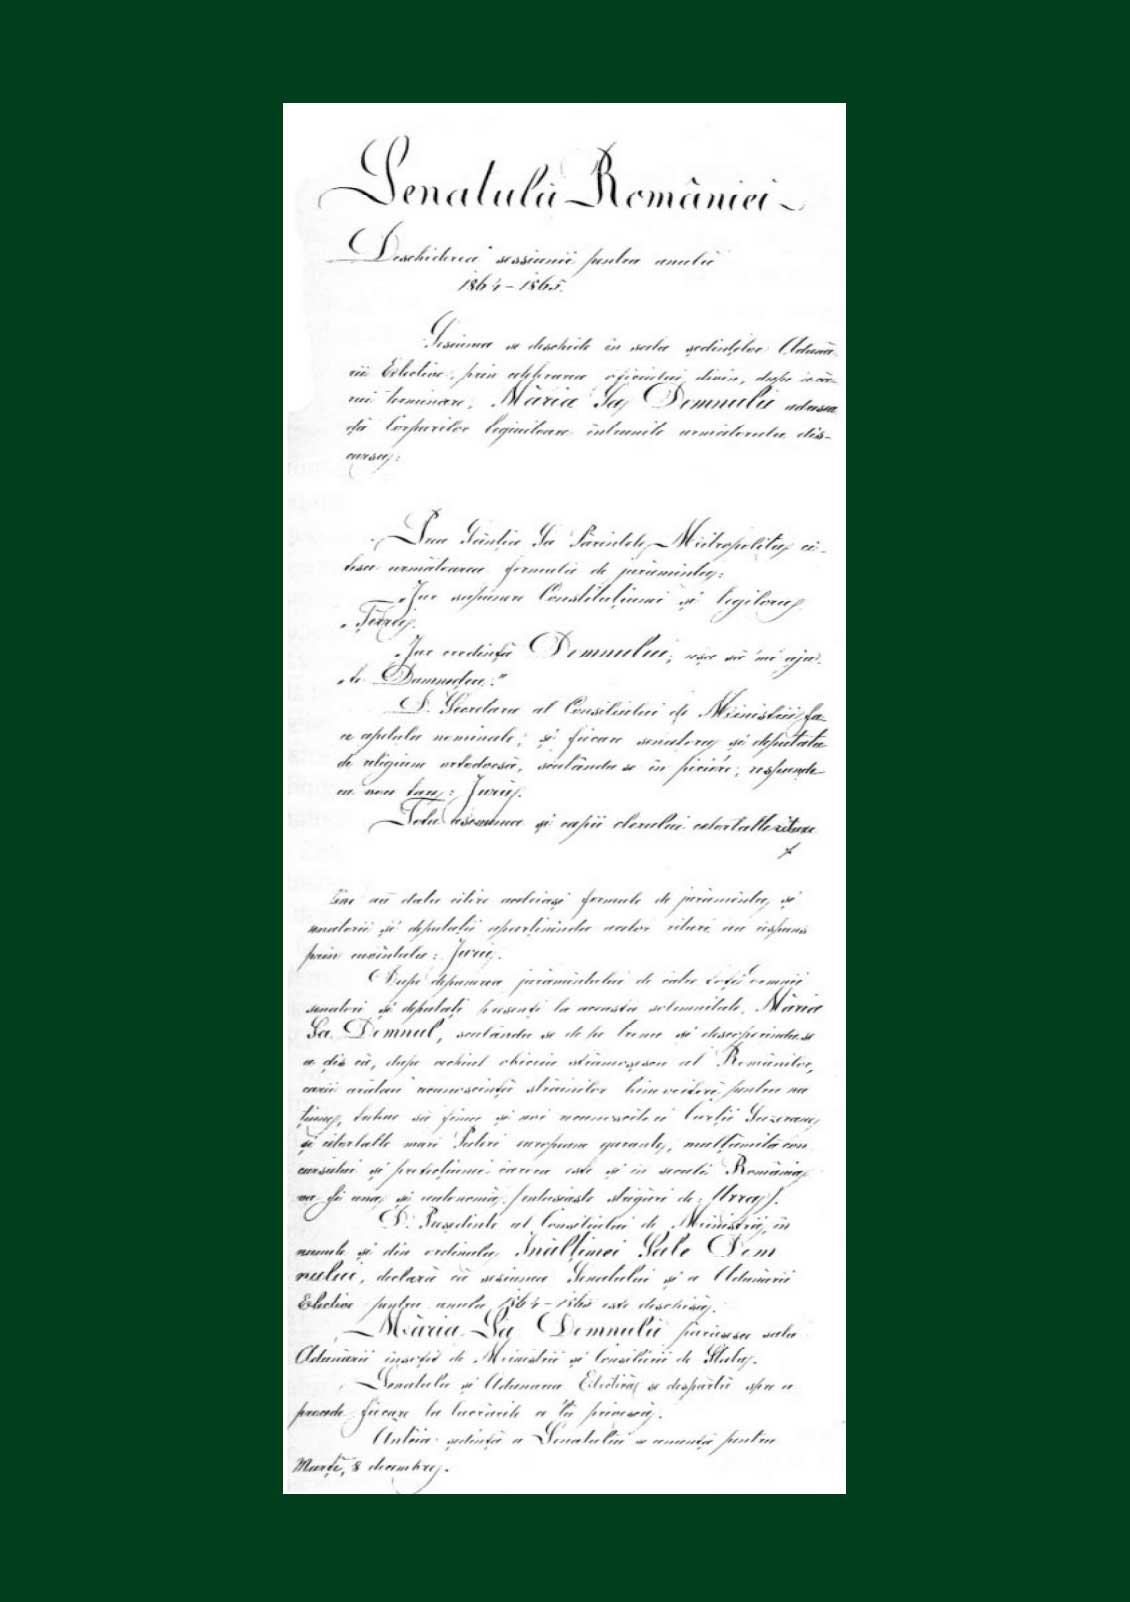 Senatulŭ României
Deschiderea sessiunii pentru anulŭ
1864–1865.
Sesiunea se deschide în sala ședințelor Aduna-
rii Elective, prin celebrarea oficiului divin, dupe a că-
rui terminare, Măria Sa Domnulŭ adresea-
ḑă Corpurilor legiuitoare întrunite urmatorulu dis-
cursŭ:
Prea Sântia Sa Părintele Mitropolitŭ ci-
tesce următoarea formulă de jurămîntŭ:
„Jur supunere Constituțiunei și legilorŭ
„Țerrei.
„Jur credință Domnului; așa să'mi aju-
„te Dumnedeu."
D. Secretaru al Consiliului de Miniștrii fa-
ce apelulu nominale; și fiecare senatoru și deputatu
de religiune ortodocsă, sculându-se în picióre, respunde
cu voce tare: Jurŭ.
Totu asemenea și capii clerului celorlalte rituri
au datu citire aceleiași formule de jurămîntŭ, și
senatorii și deputații aparținîndu acelor rituri au respuns
prin cuvîntulu: Jurŭ.
Dupe depunerea jurămîntului de catre toți domnii
senatori și deputați presenți la aceasta solemnitate, Măria
Sa Domnul, sculându-se de pe tronu și descoperindu-se
a ḑis că, dupe vechiul obiceiu strămoșescu al Românilor,
carii arătau recunoscință străinilor bine-voitori pentru na
țiune, trebue să fimu și noi recunoscători Curții Suzerane
și celorlalte mari Puteri europene garante, mulțumită con
cursului și protecțiunei carora este și în seculi România
va fi una și autonomă. (entusiaste strigări de: Urra).
D. Președinte al Consiliului de Miniștrii, în
numele și din ordinulu Înălțimei Sale Dom
nului, declară că sesiunea Senatului și a Adunării
Elective pentru anulu 1864–1865 este deschisă.
Măria Sa Domnulŭ părăsesce sala
Adunării însoțit de Miniștrii și Consilierii de Statŭ.
Senatulu și Adunarea Electivă se despartŭ spre a
procede fiecare la lucrările ce 'lŭ privescŭ.
Antêia ședință a Senatului se anunță pentru
Marți, 8 decembre.